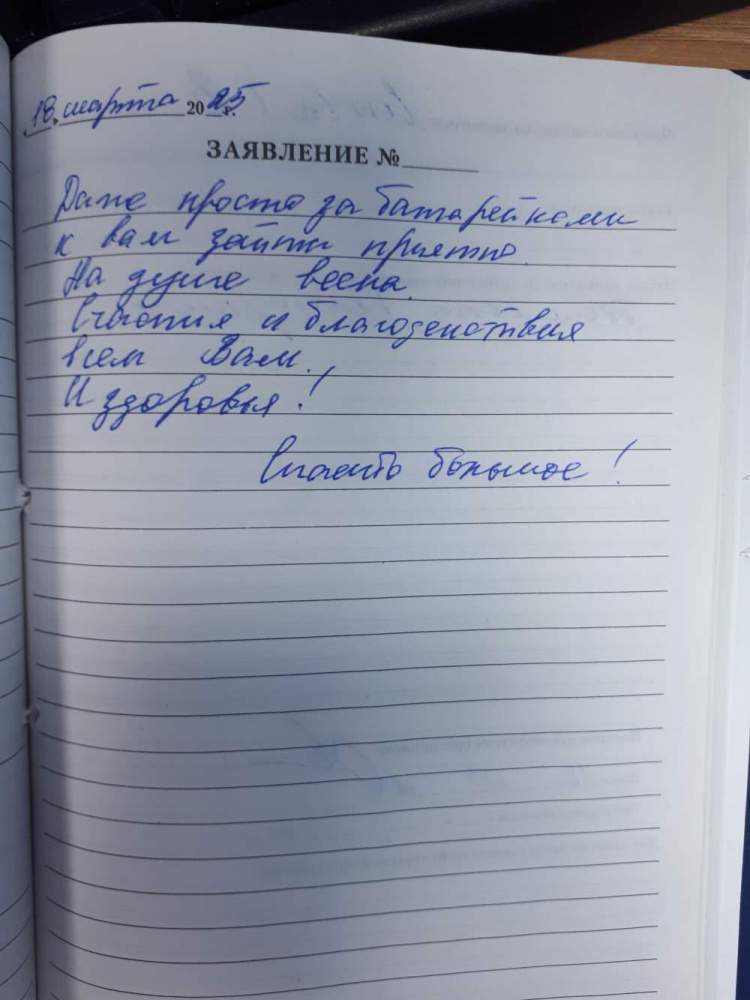 18 марта 2025 г.
ЗАЯВЛЕНИЕ №
Даже просто за батарейками
к вам зайти приятно.
На душе весна.
Счастия и благоденствия
всем Вам.
И здоровья!
Спасибо большое!